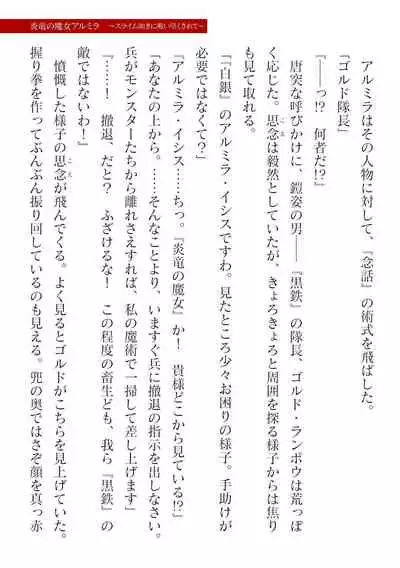 炎竜の魔女アルミラ　～スライム如きに喰い尽くされて～
アルミラはその人物に対して、『念話』の術式を飛ばした。
「ゴルド隊長」
「――っ!?　何者だ!?」
唐突な呼びかけに、鎧姿の男――『黒鉄』の隊長、ゴルド・ランボウは荒っぽ
く応じた。思念は毅然としていたが、きょろきょろと周囲を探る様子からは焦り
も見て取れる。
「『白銀』のアルミラ・イシスですわ。見たところ少々お困りの様子。手助けが
必要ではなくて？」
「アルミラ・イシス……ちっ。『炎竜の魔女』か！　貴様どこから見ている!?」
「あなたの上から。……そんなことより、いますぐ兵に撤退の指示を出しなさい。
兵がモンスターたちから離れさえすれば、私の魔術で一掃して差し上げます」
「……！　撤退、だと？　ふざけるな！　この程度の畜生ども、我ら『黒鉄』の
敵ではないわ！」
憤慨した様子の思念が飛んでくる。よく見るとゴルドがこちらを見上げていた。
握り拳を作ってぶんぶん振り回しているのも見える。兜の奥ではさぞ顔を真っ赤